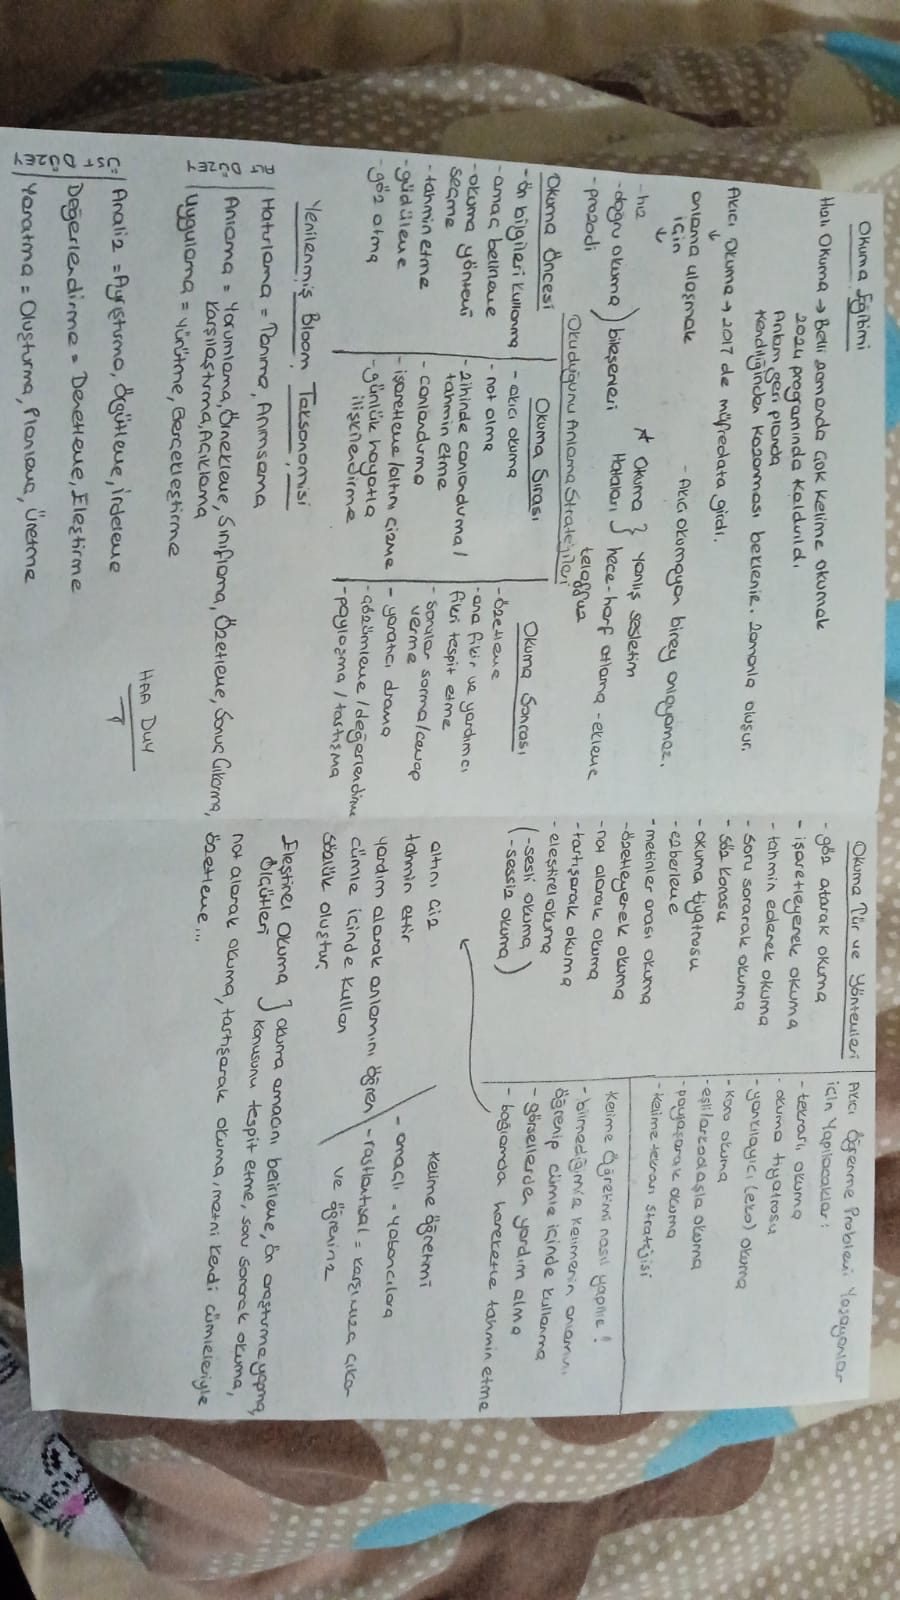 Okuma Eğitimi
Hızlı Okuma → Belli zamanda çok kelime okumak
2024 programında kaldırıldı
Anlam geri planda
kendiliğinden kazanması beklenir. zamanla oluşur.
Akıcı okuma → 2017 de müfredata girdi.
↓
anlama ulaşmak
için
↓
- Akıcı okumayan birey anlayamaz.
- hız
- doğru okuma ) bileşenleri
- prozodi
* Okuma Hataları } yanlış sesletim
hece-harf atlama - ekleme
telaffuz
Okuduğunu Anlama Stratejileri
Okuma Öncesi
- ön bilgileri kullanma
- amaç belirleme
- okuma yöntemi
seçme
- tahmin etme
- güdüleme
- göz atma
Okuma Sırası
- akıcı okuma
- not alma
- zihinde canlandırma/
tahmin etme
- canlandırma
- işaretleme/altını çizme
- günlük hayatla
ilişkilendirme
Okuma Sonrası
- özetleme
- ana fikir ve yardımcı
fikri tespit etme
- sorular sorma/cevap
verme
- yaratıcı drama
- çözümleme/değerlendirme
- paylaşma/tartışma
Yenilenmiş Bloom Taksonomisi
ALT DÜZEY
Hatırlama = Tanıma, Anımsama
Anlama = Yorumlama, Örnekleme, Sınıflama, Özetleme, Sonuç Çıkarma,
Karşılaştırma, Açıklama
Uygulama = Yürütme, Gerçekleştirme
HAA DUY
ÜST DÜZEY
Analiz = Ayrıştırma, Örgütleme, İrdeleme
Değerlendirme = Denetleme, Eleştirme
Yaratma = Oluşturma, Planlama, Üretme
Okuma Tür ve Yöntemleri
- göz atarak okuma
- işaretleyerek okuma
- tahmin ederek okuma
- soru sorarak okuma
- söz korosu
- okuma tiyatrosu
- ezberleme
- metinler arası okuma
- özetleyerek okuma
- not alarak okuma
- tartışarak okuma
- eleştirel okuma
(- sesli okuma)
(- sessiz okuma)
Akıcı Öğrenme Problemi Yaşayanlar
için Yapılacaklar:
- tekrarlı okuma
- okuma tiyatrosu
- yankılayıcı (eko) okuma
- koro okuma
- eşli/arkadaşla okuma
- paylaşarak okuma
- kelime tekrarı stratejisi
Kelime Öğretimi nasıl yapılır!
- bilmediğimiz kelimenin anlamını
öğrenip cümle içinde kullanma
- görsellerden yardım alma
- bağlamda hareketle tahmin etme
altını çiz
tahmin ettir
yardım alarak anlamını öğren
cümle içinde kullan
sözlük oluştur.
Kelime öğretimi
- amaçlı = yabancılara
- rastlantısal = karşımıza çıkar
ve öğreniriz
Eleştirel Okuma } okuma amacını belirleme, ön araştırma yapma,
Ölçütleri
konusunu tespit etme, soru sorarak okuma,
not alarak okuma, tartışarak okuma, metni kendi cümleleriyle
özetleme...